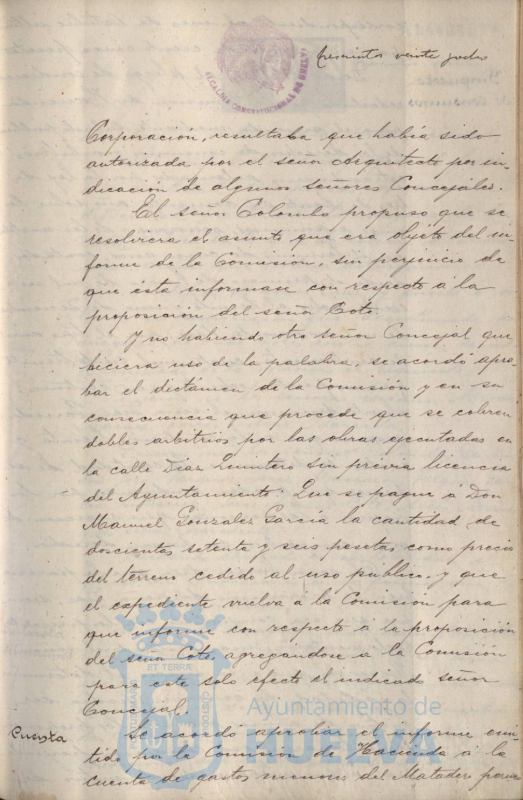 trescientos veinte y dos
ALCALDIA CONSTITUCIONAL DE HUELVA
Corporación, resultaba que había sido
autorizada por el señor Arquitecto por in-
dicación de algunos señores Concejales.
El señor Colombo propuso que se
resolviera el asunto que era objeto del in-
forme de la Comisión, sin perjuicio de
que ésta informase con respecto á la
proposición del señor Coto.
Y no habiendo otro señor Concejal que
hiciera uso de la palabra, se acordó apro-
bar el dictámen de la Comisión y en su
consecuencia que procede que se cobren
dobles arbitrios por las obras ejecutadas en
la calle Diaz Quintero sin previa licencia
del Ayuntamiento: Que se pague á Don
Manuel Gonzalez García la cantidad de
doscientas setenta y seis pesetas como precio
del terreno cedido al uso público, y que
el expediente vuelva á la Comisión para
que informe con respecto á la proposición
del señor Coto, agregándose á la Comisión
para este solo efecto el indicado señor
Concejal.
Cuenta
Se acordó aprobar el informe emi-
tido por la Comisión de Hacienda á la
cuenta de gastos menores del Matadero
ET TERRA
Ayuntamiento de
HUELVA